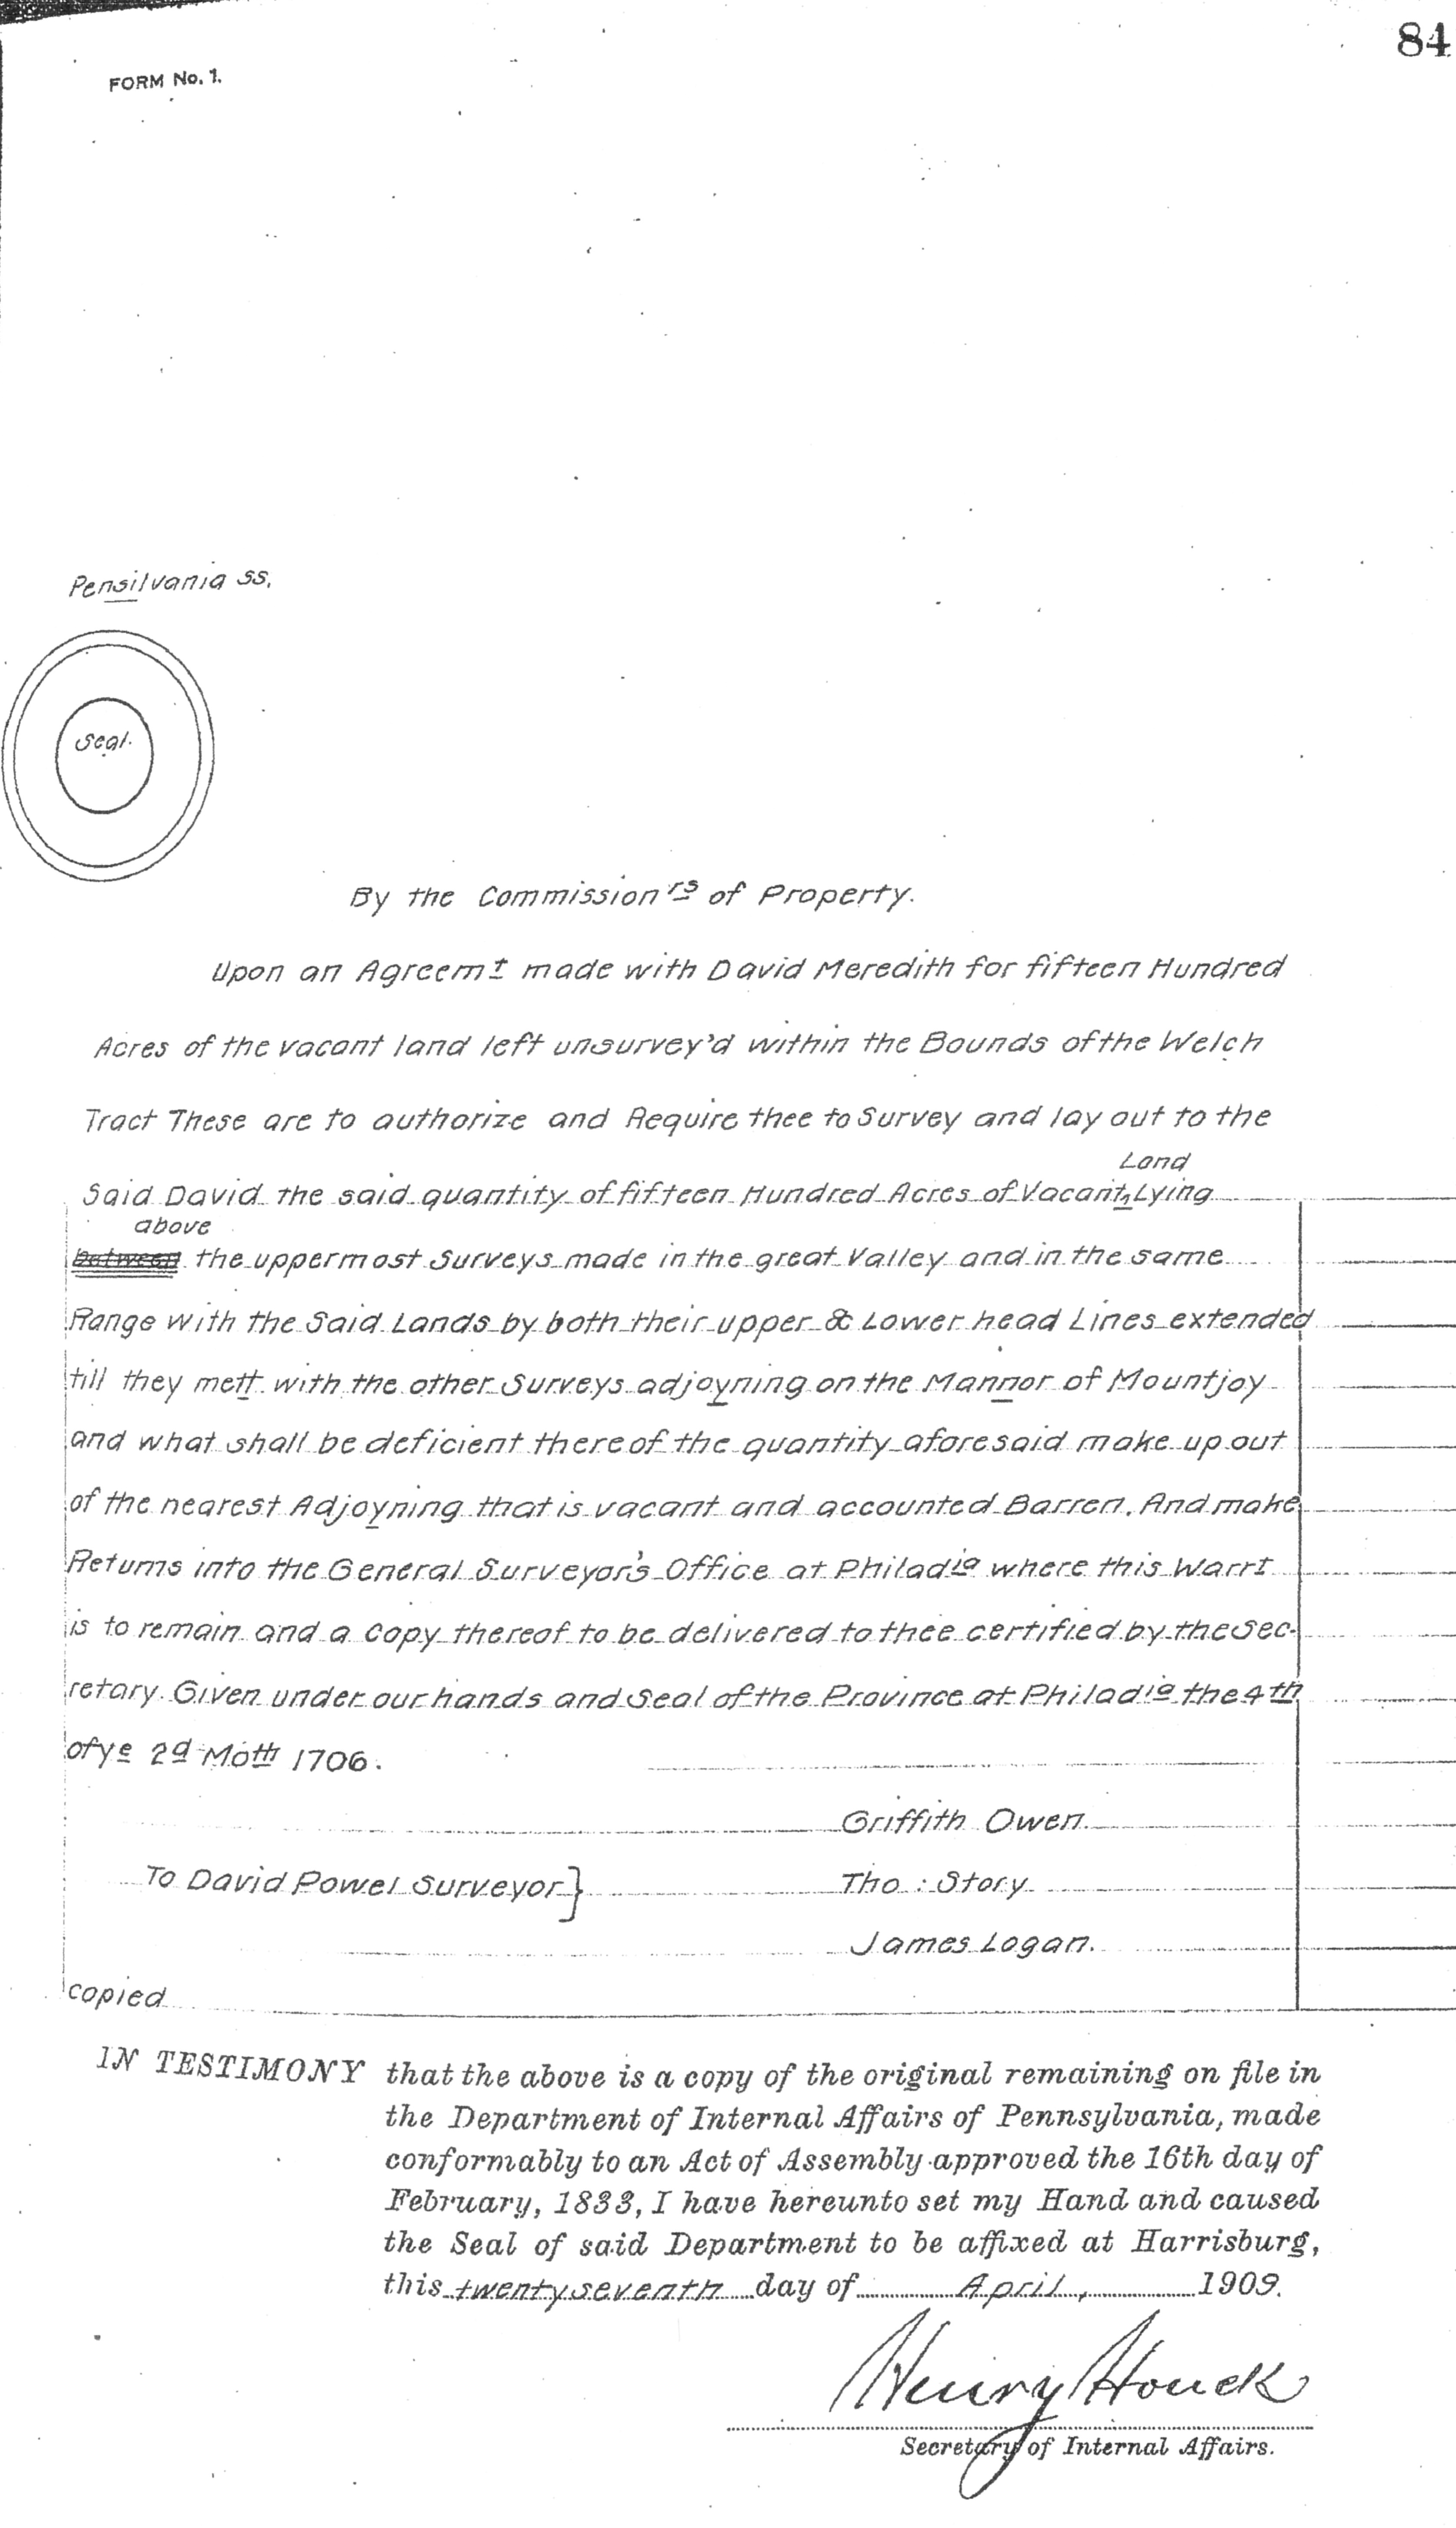 84
FORM No. 1.
Pensilvania ss.
Seal.
By the Commission rs of Property.
Upon an Agreemt made with David Meredith for fifteen Hundred
Acres of the vacant land left unsurvey'd within the Bounds of the Welch
Tract These are to authorize and Require thee to Survey and lay out to the
Land
Said David the said quantity of fifteen Hundred Acres of Vacant Lying
above
between the uppermost Surveys made in the great Valley and in the same
Range with the Said Lands by both their upper & Lower head Lines extended
till they mett with the other Surveys adjoyning on the Mannor of Mountjoy
and what shall be deficient thereof the quantity aforesaid make up out
of the nearest Adjoyning that is vacant and accounted Barren. And make
Returns into the General Surveyor's Office at Philadia where this Warrt
is to remain and a Copy thereof to be delivered to thee certified by the Sec-
retary. Given under our hands and Seal of the Province at Philadia the 4th
of ye 2d Moth 1706.
Griffith Owen.
To David Powel Surveyor} Tho: Story
James Logan.
copied
IN TESTIMONY that the above is a copy of the original remaining on file in
the Department of Internal Affairs of Pennsylvania, made
conformably to an Act of Assembly approved the 16th day of
February, 1833, I have hereunto set my Hand and caused
the Seal of said Department to be affixed at Harrisburg,
this twenty seventh day of April, 1909.
Henry Houck
Secretary of Internal Affairs.